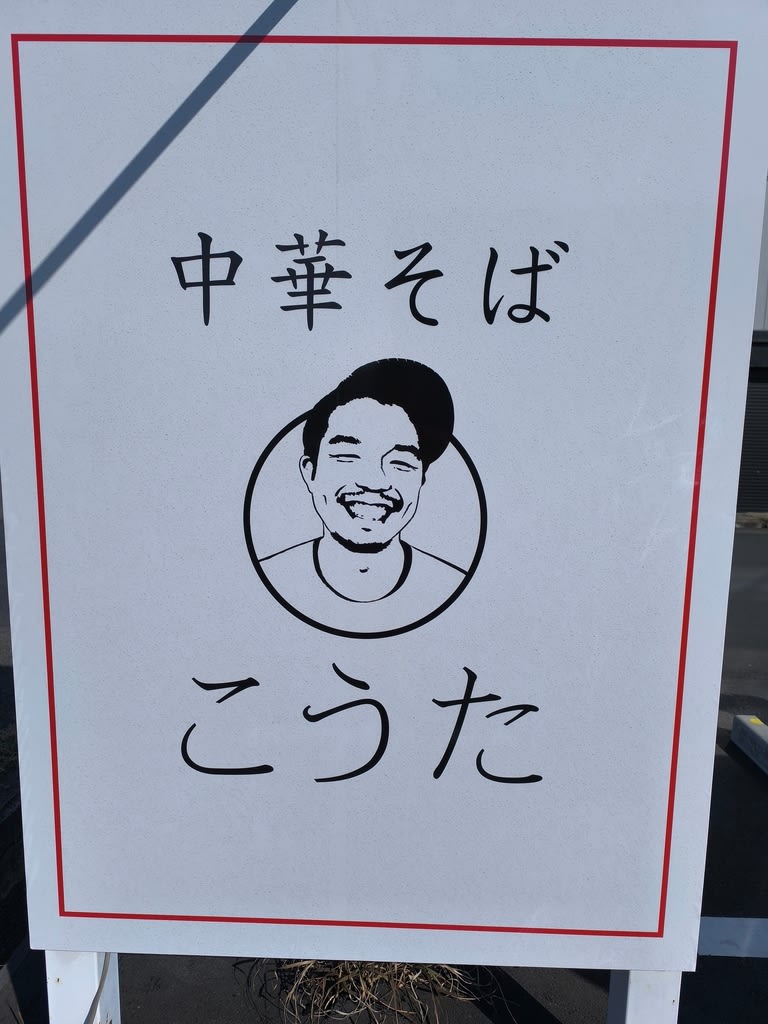 中華そば
こうた